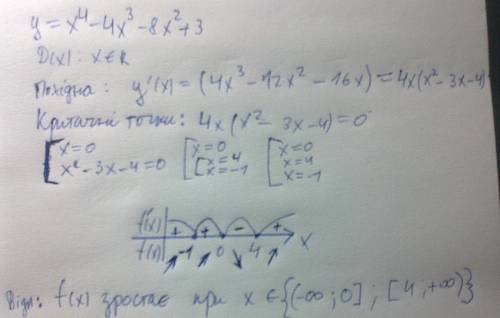 y = x⁴ - 4x³ - 8x² + 3
D(x): x ∈ R
Похідна: y'(x) = (4x³ - 12x² - 16x) = 4x(x² - 3x - 4)
Критичні точки: 4x(x² - 3x - 4) = 0
[x = 0 [x = 0 [x = 0
x² - 3x - 4 = 0 [x = 4 x = 4
x = -1 x = -1
f'(x) + + - +
f(x) ↗ -1 ↗ 0 ↘ 4 ↗ x
Відп: f(x) зростає при x ∈ {(-∞; 0] ; [4; +∞)}